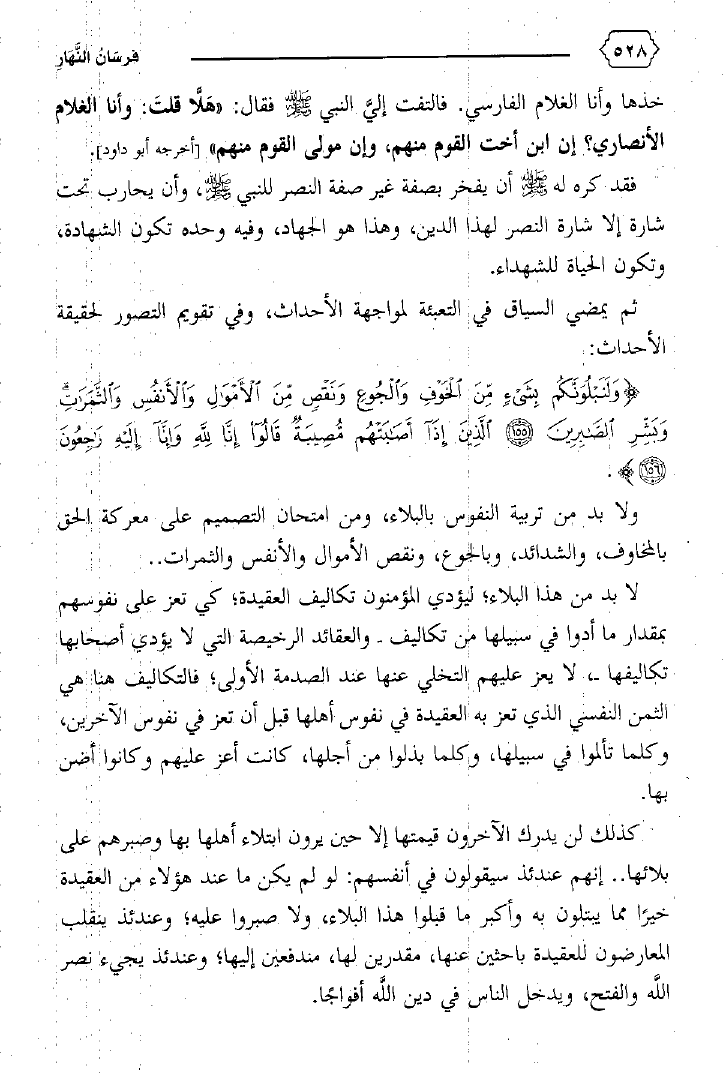 ٥٢٨ فرسَانُ النَّهَارِ
خذها وأنا الغلام الفارسي. فالتفت إليَّ النبي ﷺ فقال: «هَلَّا قلتَ: وأنا الغلام
الأنصاري؟ إن ابن أخت القوم منهم، وإن مولى القوم منهم» [أخرجه أبو داود].
فقد كره له ﷺ أن يفخر بصفة غير صفة النصر للنبي ﷺ، وأن يحارب تحت
شارة إلا شارة النصر لهذا الدين، وهذا هو الجهاد، وفيه وحده تكون الشهادة،
وتكون الحياة للشهداء.
ثم يمضي السياق في التعبئة لمواجهة الأحداث، وفي تقويم التصور لحقيقة
الأحداث:
﴿وَلَنَبْلُوَنَّكُم بِشَىْءٍ مِّنَ ٱلْخَوْفِ وَٱلْجُوعِ وَنَقْصٍ مِّنَ ٱلْأَمْوَٰلِ وَٱلْأَنفُسِ وَٱلثَّمَرَٰتِ ۗ
وَبَشِّرِ ٱلصَّٰبِرِينَ ١٥٥ ٱلَّذِينَ إِذَآ أَصَٰبَتْهُم مُّصِيبَةٌ قَالُوٓا۟ إِنَّا لِلَّهِ وَإِنَّآ إِلَيْهِ رَٰجِعُونَ
١٥٦﴾.
ولا بد من تربية النفوس بالبلاء، ومن امتحان التصميم على معركة الحق
بالمخاوف، والشدائد، وبالجوع، ونقص الأموال والأنفس والثمرات..
لا بد من هذا البلاء؛ ليؤدي المؤمنون تكاليف العقيدة؛ كي تعز على نفوسهم
بمقدار ما أدوا في سبيلها من تكاليف ـ والعقائد الرخيصة التي لا يؤدي أصحابها
تكاليفها ـ، لا يعز عليهم التخلي عنها عند الصدمة الأولى؛ فالتكاليف هنا هي
الثمن النفسي الذي تعز به العقيدة في نفوس أهلها قبل أن تعز في نفوس الآخرين،
وكلما تألموا في سبيلها، وكلما بذلوا من أجلها، كانت أعز عليهم وكانوا أضن
بها.
كذلك لن يدرك الآخرون قيمتها إلا حين يرون ابتلاء أهلها بها وصبرهم على
بلائها.. إنهم عندئذ سيقولون في أنفسهم: لو لم يكن ما عند هؤلاء من العقيدة
خيرًا مما يبتلون به وأكبر ما قبلوا هذا البلاء، ولا صبروا عليه؛ وعندئذ ينقلب
المعارضون للعقيدة باحثين عنها، مقدرين لها، مندفعين إليها؛ وعندئذ يجيء نصر
اللَّه والفتح، ويدخل الناس في دين اللَّه أفواجًا.